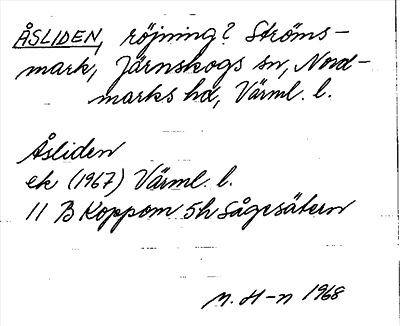 ÅSLIDEN, röjning? Ströms-
mark, Järnskogs sn, Nord-
marks hd, Värml. l.
Åsliden
ek (1967) Värml. l.
11 B Koppom 5h Sågesätern
M. H-n 1968